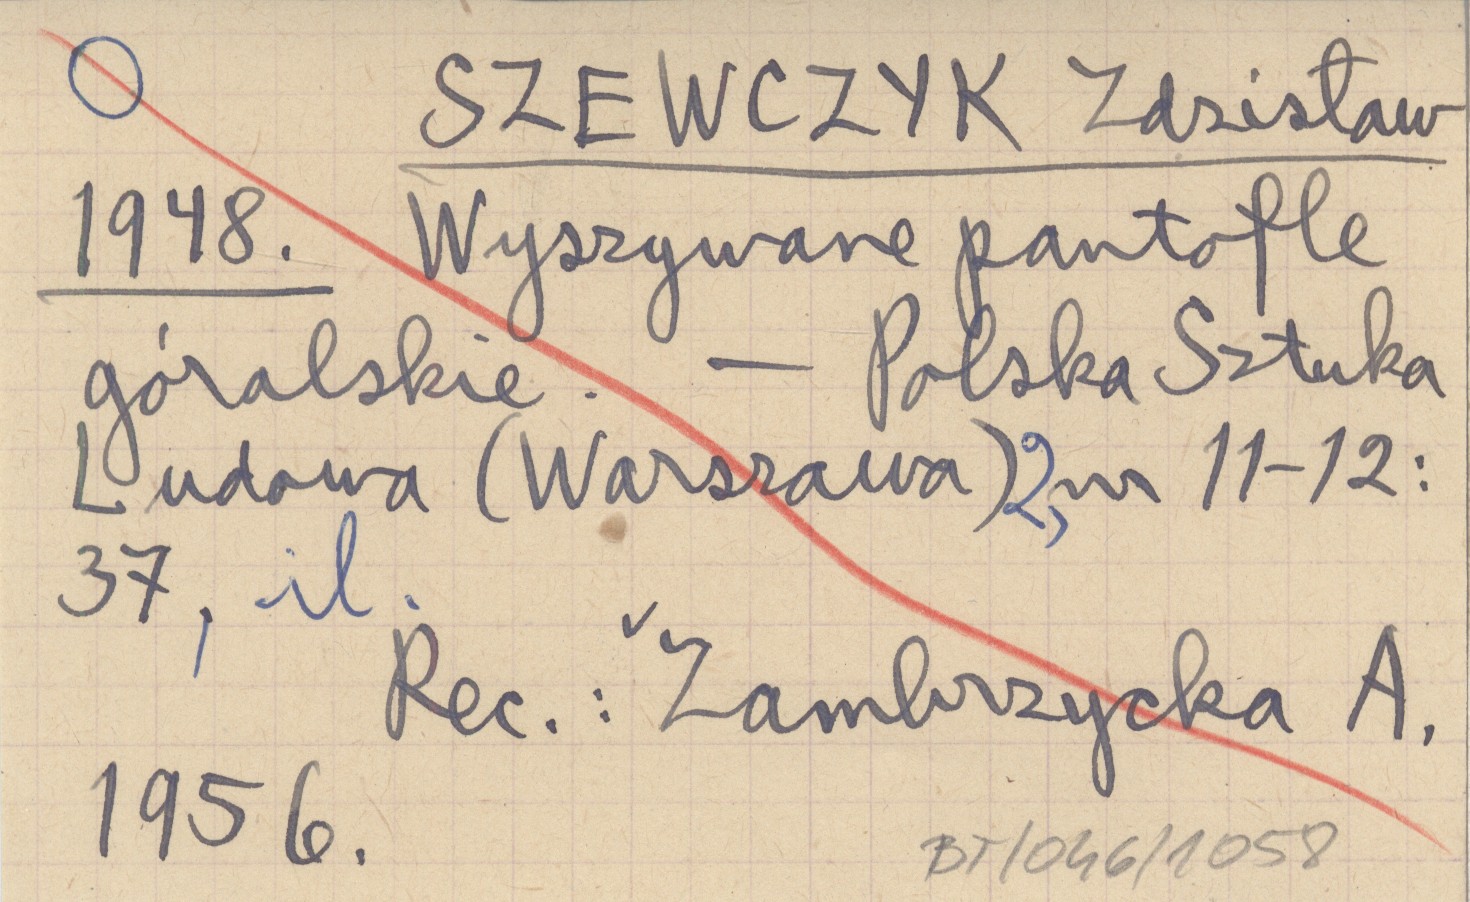 SZEWCZYK Zdzisław
1948. Wyszywane pantofle
góralskie. — Polska Sztuka
Ludowa (Warszawa) 2, nr 11-12:
37, il.
Rec.: Zambrzycka A.
1956.
BT/046/1058